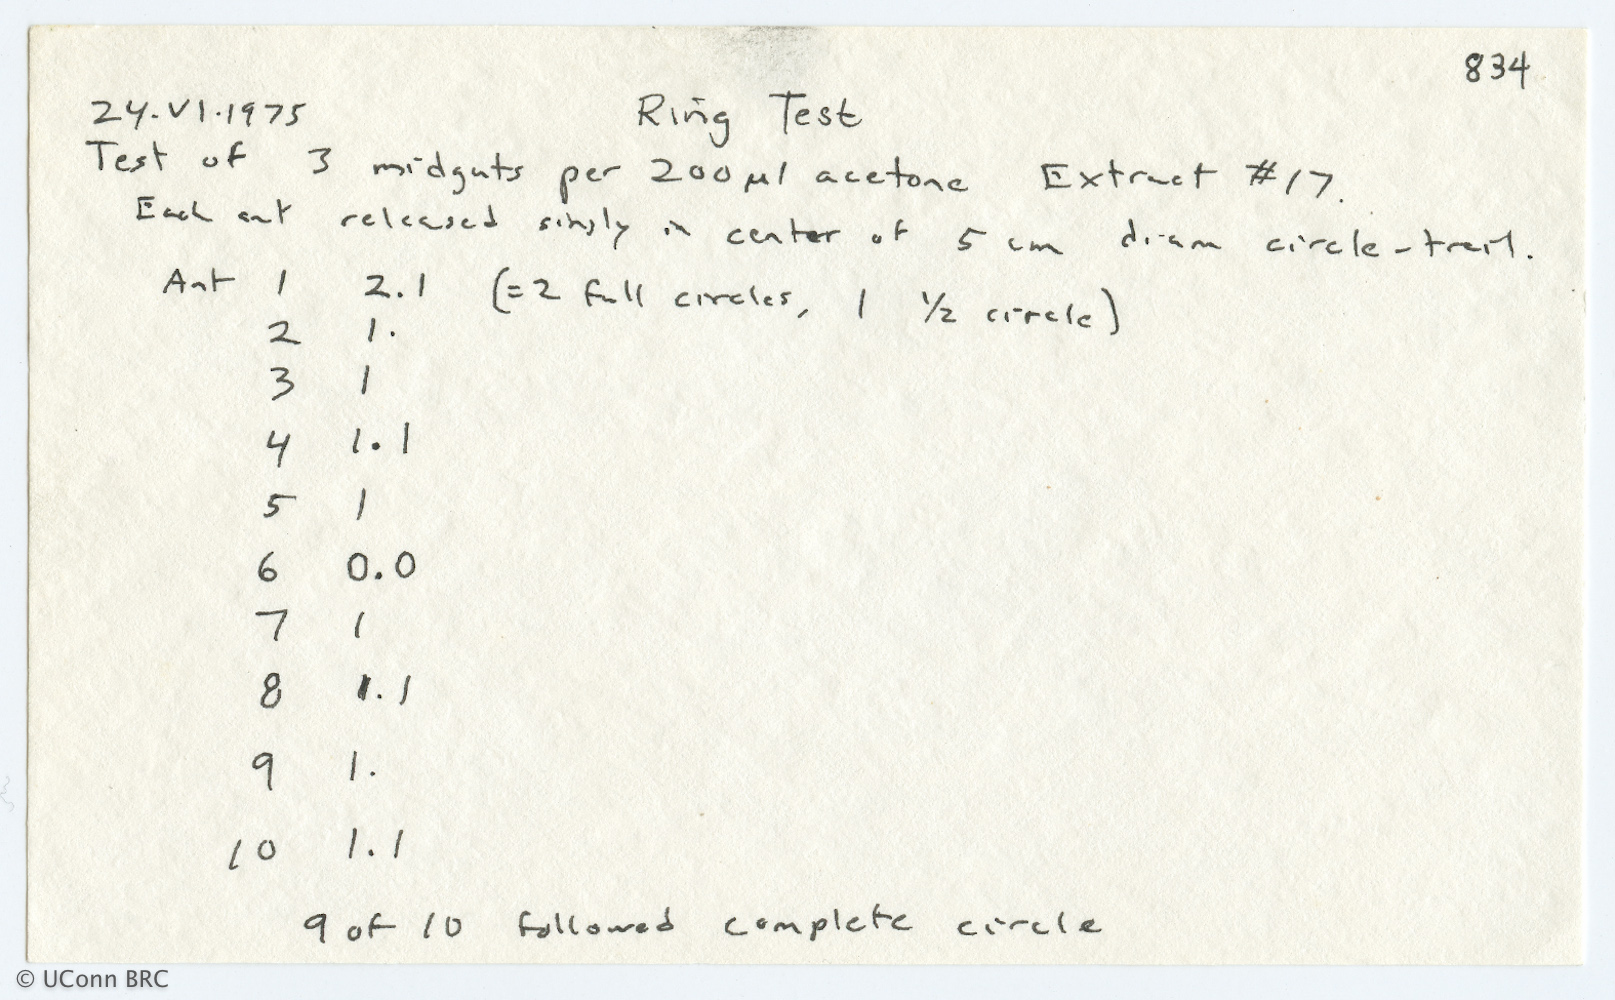 834
24.VI.1975 Ring Test
Test of 3 midguts per 200 µl acetone Extract #17.
Each ant released singly in center of 5 cm diam circle-trail.
Ant 1 2.1 (=2 full circles, 1 1/2 circle)
2 1.
3 1
4 1.1
5 1
6 0.0
7 1
8 1.1
9 1.
10 1.1
9 of 10 followed complete circle
© UConn BRC